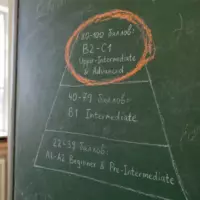 80-100 баллов:
B2-C1
Upper-Intermediate
& Advanced
40-79 баллов:
B1 Intermediate
22-39 баллов:
A1-A2 Beginner & Pre-Intermediate